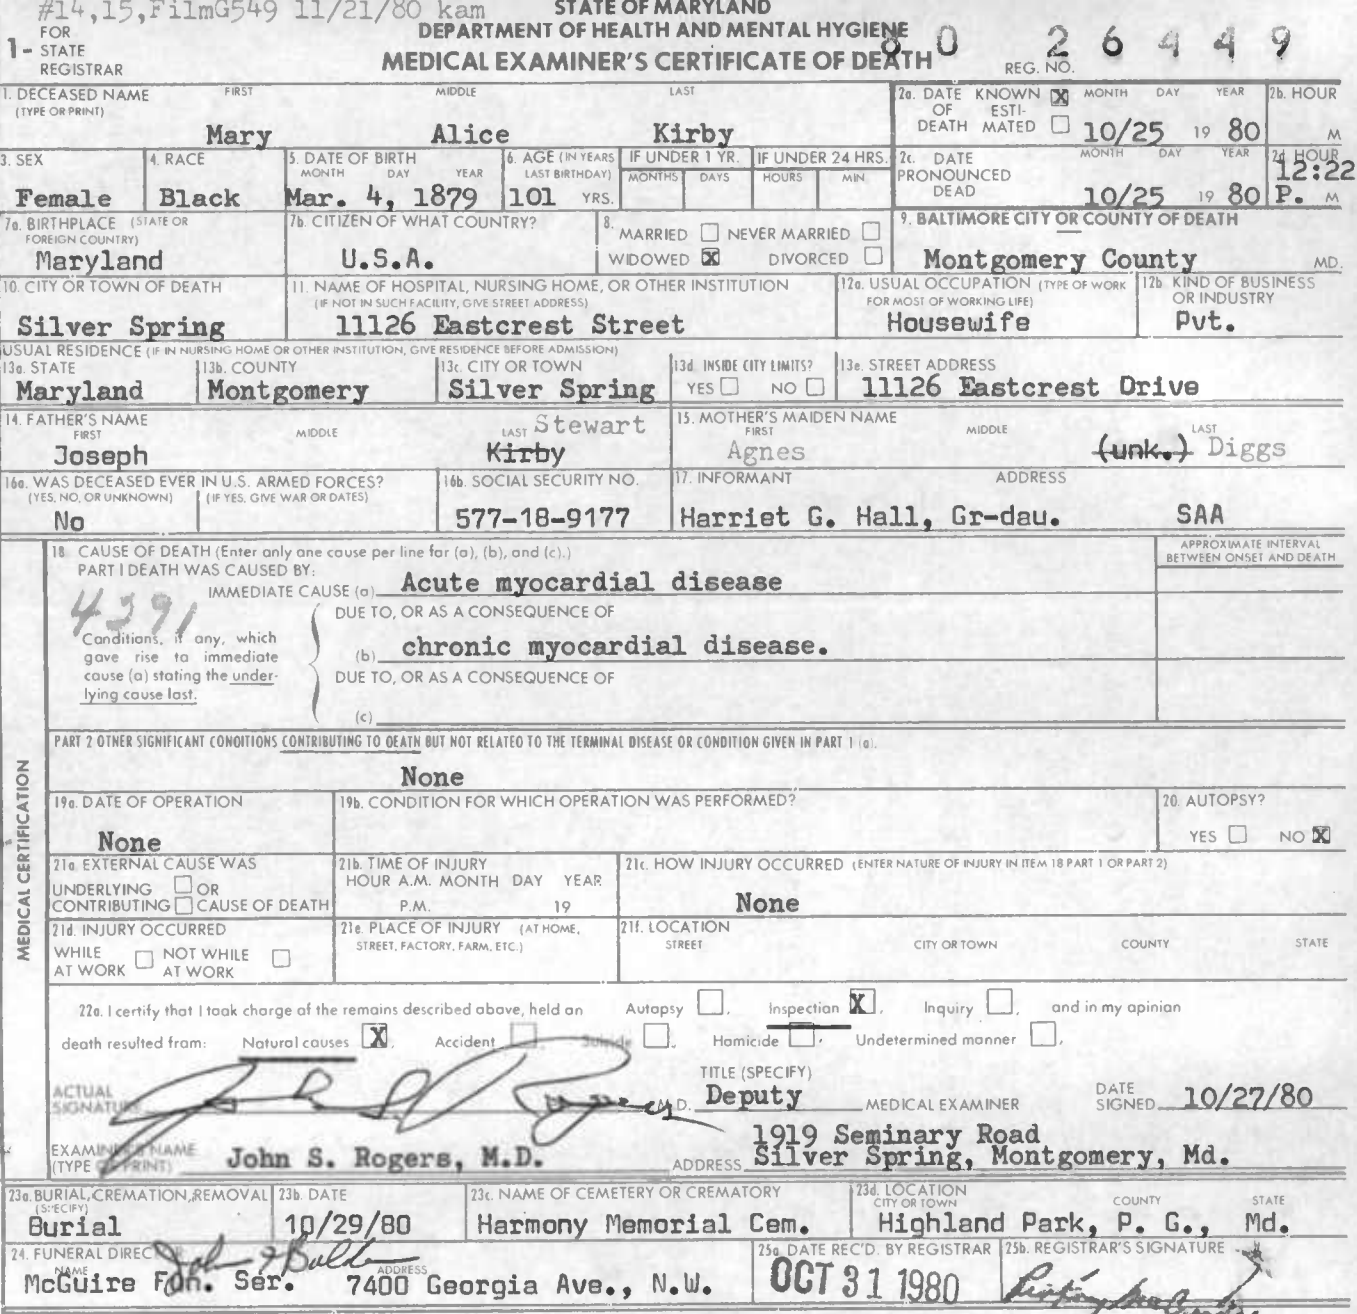 #14,15,FilmG549 11/21/80 kam
STATE OF MARYLAND
DEPARTMENT OF HEALTH AND MENTAL HYGIENE
MEDICAL EXAMINER'S CERTIFICATE OF DEATH
1- FOR STATE REGISTRAR
REG. NO. 80 26449
1. DECEASED NAME (TYPE OR PRINT) FIRST MIDDLE LAST
Mary Alice Kirby
2a. DATE OF DEATH KNOWN X ESTIMATED MONTH DAY YEAR
10/25 19 80
2b. HOUR M
3. SEX
Female
4. RACE
Black
5. DATE OF BIRTH MONTH DAY YEAR
Mar. 4, 1879
6. AGE (IN YEARS LAST BIRTHDAY)
101 YRS.
IF UNDER 1 YR. MONTHS DAYS
IF UNDER 24 HRS. HOURS MIN.
2c. DATE PRONOUNCED DEAD MONTH DAY YEAR
10/25 19 80
2d HOUR
12:22 P. M
7a. BIRTHPLACE (STATE OR FOREIGN COUNTRY)
Maryland
7b. CITIZEN OF WHAT COUNTRY?
U.S.A.
8. MARRIED NEVER MARRIED
WIDOWED X DIVORCED
9. BALTIMORE CITY OR COUNTY OF DEATH
Montgomery County MD.
10. CITY OR TOWN OF DEATH
Silver Spring
11. NAME OF HOSPITAL, NURSING HOME, OR OTHER INSTITUTION
(IF NOT IN SUCH FACILITY, GIVE STREET ADDRESS)
11126 Eastcrest Street
12a. USUAL OCCUPATION (TYPE OF WORK FOR MOST OF WORKING LIFE)
Housewife
12b. KIND OF BUSINESS OR INDUSTRY
Pvt.
USUAL RESIDENCE (IF IN NURSING HOME OR OTHER INSTITUTION, GIVE RESIDENCE BEFORE ADMISSION)
13a. STATE
Maryland
13b. COUNTY
Montgomery
13c. CITY OR TOWN
Silver Spring
13d. INSIDE CITY LIMITS?
YES NO
13e. STREET ADDRESS
11126 Eastcrest Drive
14. FATHER'S NAME FIRST MIDDLE LAST
Joseph Kirby Stewart
15. MOTHER'S MAIDEN NAME FIRST MIDDLE LAST
Agnes (unk.) Diggs
16a. WAS DECEASED EVER IN U.S. ARMED FORCES?
(YES, NO, OR UNKNOWN) (IF YES, GIVE WAR OR DATES)
No
16b. SOCIAL SECURITY NO.
577-18-9177
17. INFORMANT ADDRESS
Harriet G. Hall, Gr-dau. SAA
MEDICAL CERTIFICATION
18. CAUSE OF DEATH (Enter only one cause per line for (a), (b), and (c).)
PART I DEATH WAS CAUSED BY:
APPROXIMATE INTERVAL BETWEEN ONSET AND DEATH
IMMEDIATE CAUSE (a) Acute myocardial disease
4391
DUE TO, OR AS A CONSEQUENCE OF
Conditions, if any, which gave rise to immediate cause (a) stating the underlying cause last.
(b) chronic myocardial disease.
DUE TO, OR AS A CONSEQUENCE OF
(c)
PART 2 OTHER SIGNIFICANT CONDITIONS CONTRIBUTING TO DEATH BUT NOT RELATED TO THE TERMINAL DISEASE OR CONDITION GIVEN IN PART 1 (a).
None
19a. DATE OF OPERATION
None
19b. CONDITION FOR WHICH OPERATION WAS PERFORMED?
20. AUTOPSY?
YES NO X
21a. EXTERNAL CAUSE WAS
UNDERLYING OR
CONTRIBUTING CAUSE OF DEATH
21b. TIME OF INJURY
HOUR A.M. MONTH DAY YEAR
P.M. 19
21c. HOW INJURY OCCURRED (ENTER NATURE OF INJURY IN ITEM 18 PART 1 OR PART 2)
None
21d. INJURY OCCURRED
WHILE AT WORK NOT WHILE AT WORK
21e. PLACE OF INJURY (AT HOME, STREET, FACTORY, FARM, ETC.)
21f. LOCATION
STREET CITY OR TOWN COUNTY STATE
22a. I certify that I took charge of the remains described above, held an Autopsy , Inspection X , Inquiry , and in my opinion
death resulted from: Natural causes X , Accident , Suicide , Homicide , Undetermined manner .
ACTUAL SIGNATURE John S. Rogers M.D.
TITLE (SPECIFY)
Deputy MEDICAL EXAMINER
DATE SIGNED 10/27/80
EXAMINER'S NAME (TYPE OR PRINT) John S. Rogers, M.D.
ADDRESS 1919 Seminary Road
Silver Spring, Montgomery, Md.
23a. BURIAL, CREMATION, REMOVAL (SPECIFY)
Burial
23b. DATE
10/29/80
23c. NAME OF CEMETERY OR CREMATORY
Harmony Memorial Cem.
23d. LOCATION CITY OR TOWN COUNTY STATE
Highland Park, P. G., Md.
24. FUNERAL DIREC
NAME ADDRESS
McGuire Fun. Ser. 7400 Georgia Ave., N.W.
25a. DATE REC'D. BY REGISTRAR
OCT 31 1980
25b. REGISTRAR'S SIGNATURE